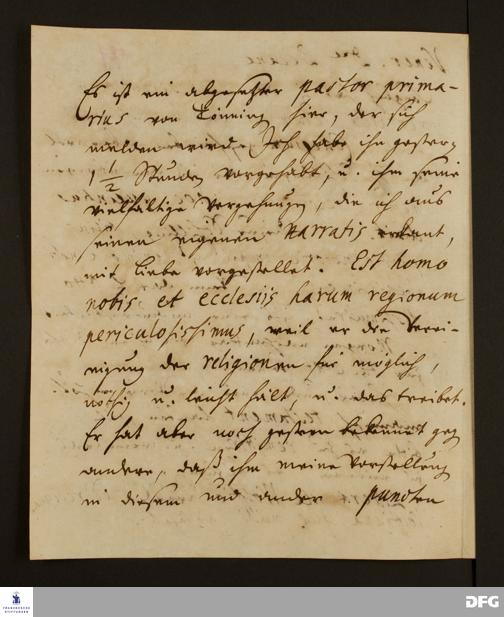 Es ist ein abgesetzter pastor prima-
rius von Tönning hier, der sich
melden wird. Ich habe ihn gestern
1 1/2 Stunden vorgehabt, u. ihm seine
vielfältige Vergehungen, die ich aus
seinen eigenen Narratis erkant,
mit Liebe vorgestellet. Est homo
nobis et ecclesiis harum regionum
periculosissimus, weil er die Verei-
nigung der religionen für möglich,
nöthig u. leicht hält, u. das treibet.
Er hat aber noch gestern bekennet geg
andere, daß ihm meine Vorstellung
in diesem und ander puncten
FRANCKESCHE
STIFTUNGEN
DFG